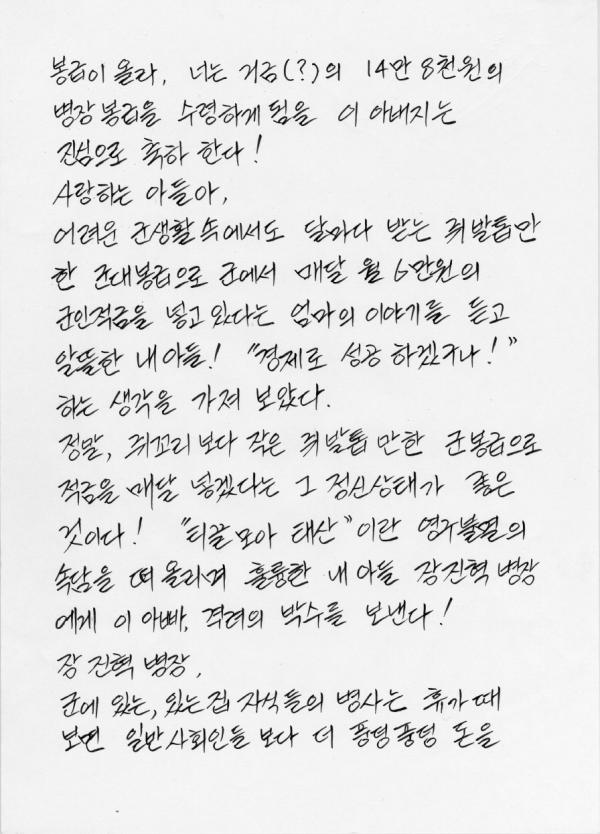 봉급이 올라, 너는 거금(?)의 14만 8천원의
병장 봉급을 수령하게 됨을 이 아버지는
진심으로 축하 한다!
사랑하는 아들아,
어려운 군생활 속에서도 달마다 받는 쥐발톱만
한 군대봉급으로 군에서 매달 월 6만원의
군인적금을 넣고 있다는 엄마의 이야기를 듣고
알뜰한 내 아들! "경제로 성공 하겠구나!"
하는 생각을 가져 보았다.
정말, 쥐꼬리 보다 작은 쥐발톱 만한 군봉급으로
적금을 매달 넣겠다는 그 정신상태가 좋은
것이다! "티끌 모아 태산"이란 영구불멸의
속담을 떠 올리며 훌륭한 내 아들 장진혁 병장
에게 이 아빠, 격려의 박수를 보낸다!
장 진혁 병장,
군에 있는, 있는 집 자식들의 병사는 휴가 때
보면 일반 사회인들 보다 더 풍덩풍덩 돈을